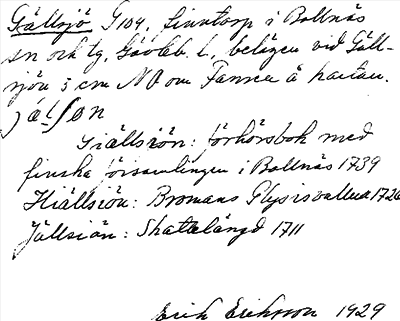 Gällsjö G104, finntorp i Bollnäs
sn och tg, Gävleb. l., belägen vid Gäll-
sjön 5 cm NO om Fanne å kartan.
jälʃøn
Giällsiön: förhörsbok med
finska församlingen i Bollnäs 1739
Hiällsiön: Bromans Glysisvallur 1726
Jällsiön: Skattelängd 1711
Erik Eriksson 1929